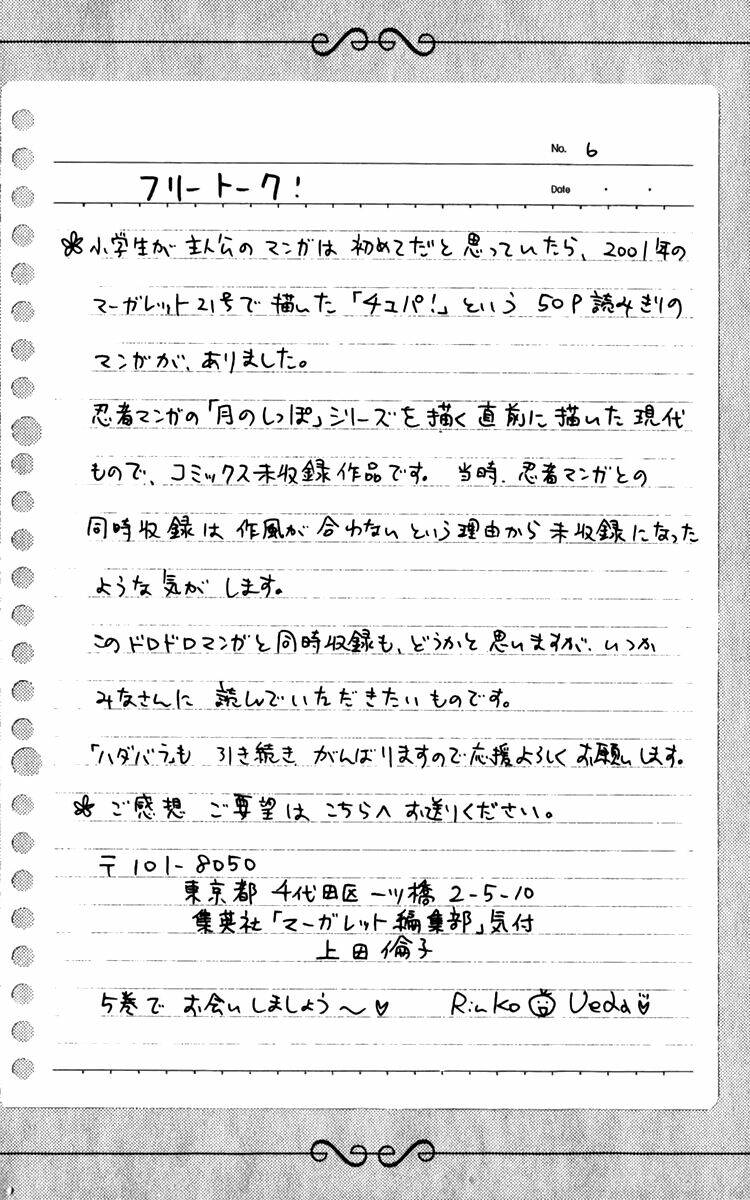 No. 6
フリートーク!
Date ・ ・
✽小学生が主人公のマンガは初めてだと思っていたら、2001年の
マーガレット21号で描いた「チュパ!」という50P読みきりの
マンガが、ありました。
忍者マンガの「月のしっぽ」シリーズを描く直前に描いた現代
もので、コミックス未収録作品です。当時、忍者マンガとの
同時収録は作風が合わないという理由から未収録になった
ような気がします。
このドロドロマンガと同時収録も、どうかと思いますが、いつか
みなさんに読んでいただきたいものです。
「ハダバラ」も引き続きがんばりますので応援よろしくお願いします。
✽ご感想ご要望はこちらへお送りください。
〒101-8050
東京都千代田区一ツ橋2-5-10
集英社「マーガレット編集部」気付
上田倫子
5巻でお会いしましょう〜♡
Rinko Ueda